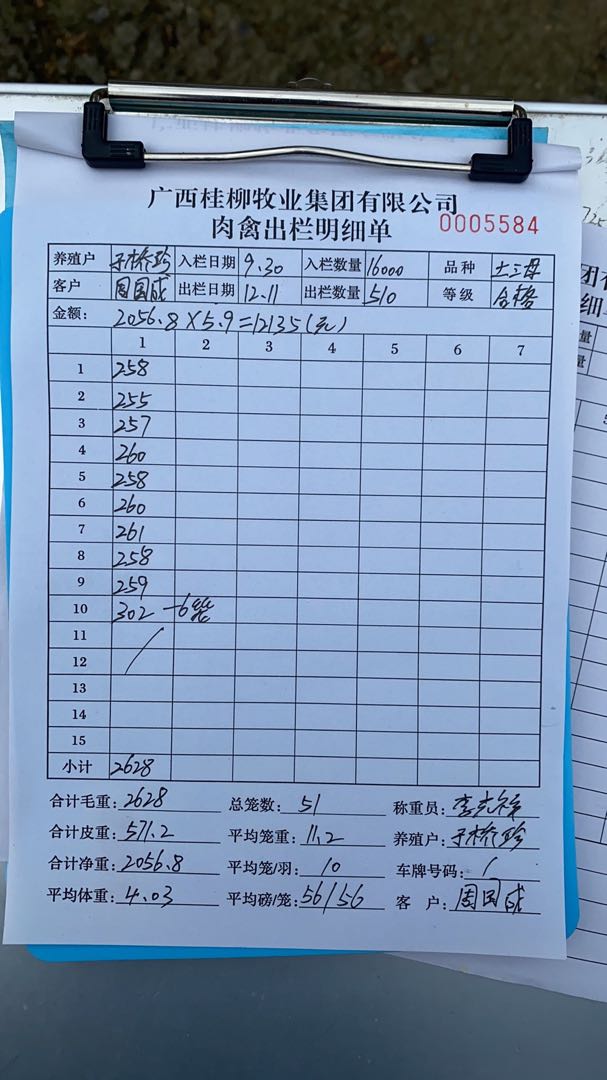 广西桂柳牧业集团有限公司
肉禽出栏明细单 0005584
养殖户 入栏日期 9.30 入栏数量 16000 品种 土三母
客户 周国成 出栏日期 12.11 出栏数量 510 等级 合格
金额: 2056.8×5.9=12135(元)
1 2 3 4 5 6 7
1 258
2 255
3 257
4 260
5 258
6 260
7 261
8 258
9 259
10 302 -6笼
11
12
13
14
15
小计 2628
合计毛重: 2628 总笼数: 51 称重员:
合计皮重: 571.2 平均笼重: 11.2 养殖户:
合计净重: 2056.8 平均笼/羽: 10 车牌号码: /
平均体重: 4.03 平均磅/笼: 56/56 客户: 周国成